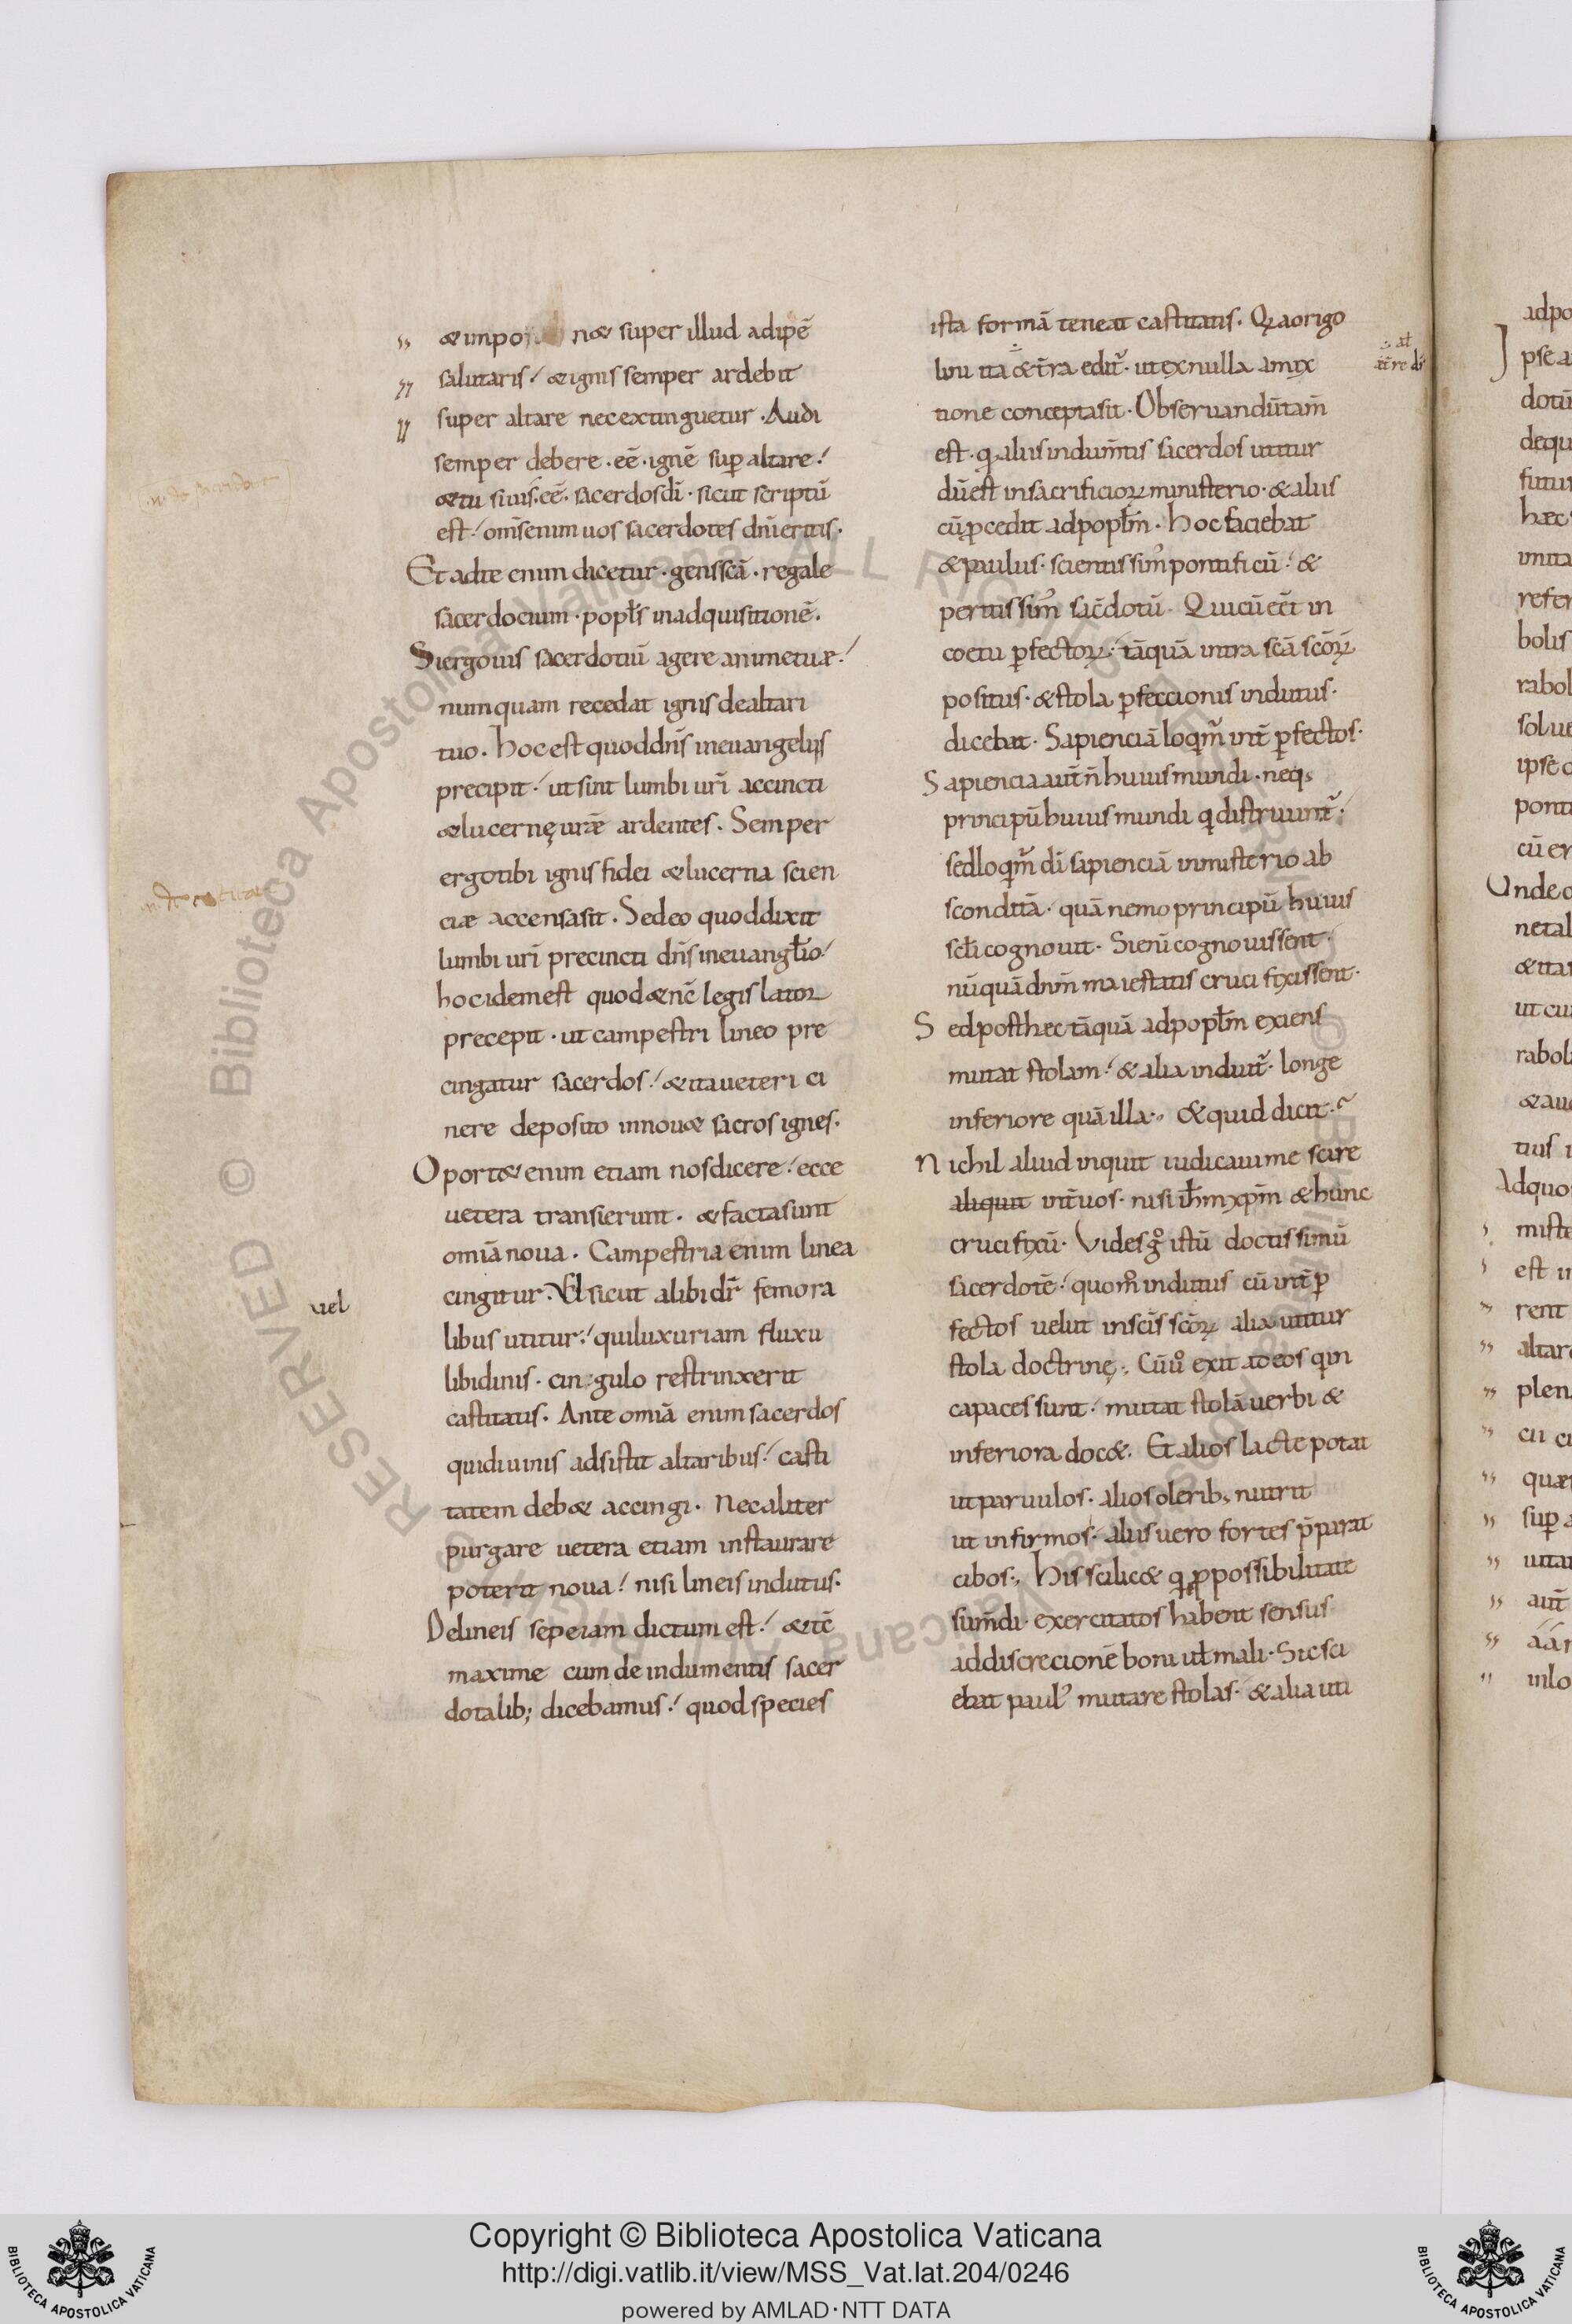 & impo n& super illud adipē
salutaris / & ignis semper ardebit
super altare nec extinguetur · Audi
semper debere · eē · ignē sup altare /
& tu si uis · eē · sacerdos dī · sicut scriptū
est / om̄s enim uos sacerdotes dn̄i eritis ·
Et ad te enim dicetur · gens scā · regale
sacerdocium · popl̄s in adquisitionē ·
Si ergo uis sacerdotiū agere anime tuæ /
numquam recedat ignis de altari
tuo · hoc est quod dn̄s in euangelijs
precipit / ut sint lumbi urī accincti
& lucernę urǣ ardentes · Semper
ergo tibi ignis fidei & lucerna scien
ciæ accensa sit · Sed eo quod dixit
lumbi urī precincti dn̄s in euangl̄io /
hoc idem est quod & nc̄ legis lator
precepit · ut campestri lineo pre
cingatur sacerdos / & ita ueteri ci
nere deposito innou& sacros ignes ·
Oport& enim etiam nos dicere / ecce
uetera transierunt · & facta sunt
omīa noua · Campestria enim linea
uel
cingitur · Vel sicut alibi dr̄ femora
libus utitur / qui luxuriam fluxu
libidinis · cingulo restrinxerit
castitatis · Ante omīa enim sacerdos
qui diuinis adsistit altaribus / casti
tatem deb& accingi · Nec aliter
purgare uetera etiam instaurare
poterit noua / nisi lineis indutus ·
De lineis sepe iam dictum est / & tc̄
maxime cum de indumentis sacer
dotalib; dicebamus / quod species
ista formā teneat castitatis · Quia origo
lini ita & t̄ra edit̄ · ut ex nulla amix
tione concepta sit · Obseruandū tam̄
est · q aliis indum̄tis sacerdos utitur
dū est in sacrificioꝝ ministerio · & aliis
cū ꝓcedit ad popl̄m · hoc faciebat
& paulus · scientissim' pontificū / &
peritissim' sac̄dotū · Qui cū eēt in
coetu ꝑfectoꝝ / tāquā intra scā scōꝝ
positus · & stola ꝑfeccionis indutus ·
dicebat · Sapienciā loq̄m̄ int̄ ꝑfectos ·
Sapiencia aut̄ n̄ huius mundi · neq;
principū huius mundi q distruunt̄ /
sed loq̄m̄ dī sapienciā in misterio ab
sconditā · quā nemo principū huius
scl̄i cognouit · Si enī cognouissent ·
nūquā dn̄m maiestatis crucifixissent ·
Sed post hec tāquā ad popl̄m exiens
mutat stolam / & alia induit̄ · longe
inferiore quā illa · & quid dicit ·
Nichil aliud inquit iudicaui me scire
aliquit int̄ uos · nisi ih̄m xpm̄ & hunc
crucifixū · Vides g° istū doctissimū
sacerdotē / quom° indutus cū int̄ ꝑ
fectos uelut in scīs scōꝝ alia utitur
stola doctrinę · Cū u° exit ad eos q n̄
capaces sunt / mutat stolā uerbi &
inferiora doc& · Et alios lacte potat
ut paruulos · alios olerib; nutrit
ut infirmos · aliis uero fortes p̄parat
cibos · His scilic& q ꝓ possibilitate
sumdi · exercitatos habent sensus
ad discrecionē boni ul̄ mali · Sic sci
ebat paul' mutare stolas · & alia uti
adpo
pse a
dotū
dequ
futur
hæc
imita
refer
bolis
rabol
solue
ipse
ponti
cū er
Unde
netal
& ita
ut cu
rabol
& au
tius
Adquo
miste
est i
rent
altar
plen
cū ci
quæ
sup a
uita
aut̄
inlo
© Biblioteca Apostolica Vaticana ALL RIGHTS RESERVED
Copyright © Biblioteca Apostolica Vaticana
http://digi.vatlib.it/view/MSS_Vat.lat.204/0246
powered by AMLAD·NTT DATA
BIBLIOTECA APOSTOLICA VATICANA
BIBLIOTECA APOSTOLICA VATICANA